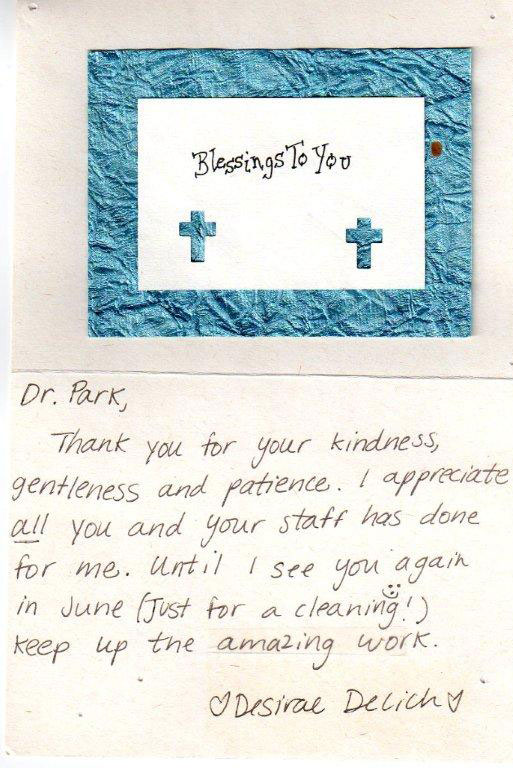 Blessings To You
Dr. Park,
Thank you for your kindness,
gentleness and patience. I appreciate
all you and your staff has done
for me. Until I see you again
in June (Just for a cleaning!)
keep up the amazing work.
♡Desirae Delich♡